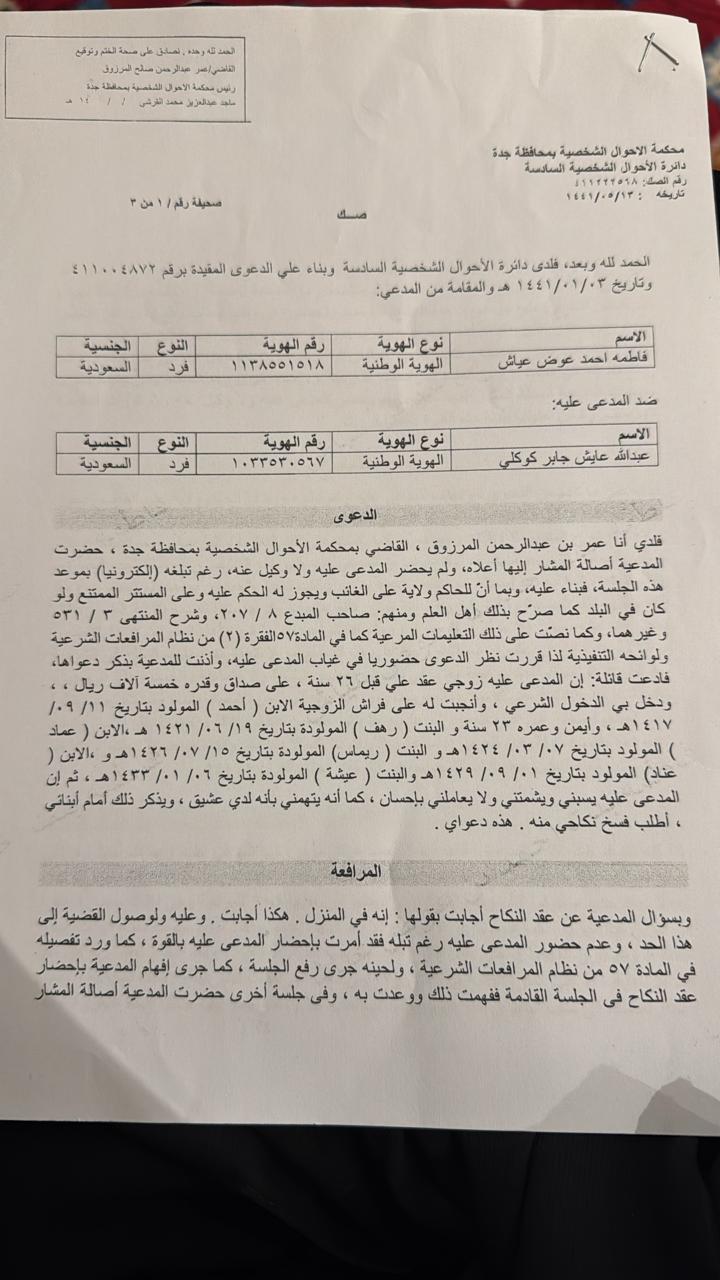 الحمد لله وحده , نصادق على صحة الختم وتوقيع
القاضي/عمر عبدالرحمن صالح المرزوق
رئيس محكمة الاحوال الشخصية بمحافظة جدة
ماجد عبدالعزيز محمد القرشي / / ١٤ هـ
محكمة الاحوال الشخصية بمحافظة جدة
دائرة الأحوال الشخصية السادسة
رقم الصك:
تاريخه : ١٤٤١/٠٥/١٣
صحيفة رقم / ١ من ٣
صــك
الحمد لله وبعد، فلدى دائرة الأحوال الشخصية السادسة وبناء علي الدعوى المقيدة برقم ٤١١٠٠٤٨٧٢
وتاريخ ١٤٤١/٠١/٠٣ هـ والمقامة من المدعي:
الاسم نوع الهوية رقم الهوية النوع الجنسية
فاطمه احمد عوض عياش الهوية الوطنية ١١٣٨٥٥١٥١٨ فرد السعودية
ضد المدعى عليه:
الاسم نوع الهوية رقم الهوية النوع الجنسية
عبدالله عايش جابر كوكلي الهوية الوطنية ١٠٣٣٥٣٠٥٦٧ فرد السعودية
الدعوى
فلدي أنا عمر بن عبدالرحمن المرزوق ، القاضي بمحكمة الأحوال الشخصية بمحافظة جدة ، حضرت
المدعية أصالة المشار إليها أعلاه، ولم يحضر المدعى عليه ولا وكيل عنه، رغم تبلغه (إلكترونيا) بموعد
هذه الجلسة، فبناء عليه، وبما أنّ للحاكم ولاية على الغائب ويجوز له الحكم عليه وعلى المستتر الممتنع ولو
كان في البلد كما صرّح بذلك أهل العلم ومنهم: صاحب المبدع ٨ / ٢٠٧، وشرح المنتهى ٣ / ٥٣١
وغيرهما، وكما نصّت على ذلك التعليمات المرعية كما في المادة٥٧الفقرة (٢) من نظام المرافعات الشرعية
ولوائحه التنفيذية لذا قررت نظر الدعوى حضوريا في غياب المدعى عليه، وأذنت للمدعية بذكر دعواها،
فادعت قائلة: إن المدعى عليه زوجي عقد علي قبل ٢٦ سنة ، على صداق وقدره خمسة آلاف ريال ، ،
ودخل بي الدخول الشرعي ، وأنجبت له على فراش الزوجية الابن ( أحمد ) المولود بتاريخ ١١/ ٠٩/
١٤١٧هـ ، وأيمن وعمره ٢٣ سنة و البنت ( رهف ) المولودة بتاريخ ١٩/ ٠٦/ ١٤٢١ هـ ،الابن ( عماد
) المولود بتاريخ ٠٧/ ٠٣/ ١٤٢٤هـ و البنت ( ريماس) المولودة بتاريخ ١٥/ ٠٧/ ١٤٢٦هـ و ،الابن (
عناد) المولود بتاريخ ٠١/ ٠٩/ ١٤٢٩هـ والبنت ( عيشة ) المولودة بتاريخ ٠٦/ ٠١/ ١٤٣٣هـ ، ثم إن
المدعى عليه يسبني ويشتمني ولا يعاملني بإحسان ، كما أنه يتهمني بأنه لدي عشيق ، ويذكر ذلك أمام أبنائي
، أطلب فسخ نكاحي منه . هذه دعواي .
المرافعة
وبسؤال المدعية عن عقد النكاح أجابت بقولها : إنه في المنزل . هكذا أجابت . وعليه ولوصول القضية إلى
هذا الحد ، وعدم حضور المدعى عليه رغم تبله فقد أمرت بإحضار المدعى عليه بالقوة ، كما ورد تفصيله
في المادة ٥٧ من نظام المرافعات الشرعية ، ولحينه جرى رفع الجلسة ، كما جرى إفهام المدعية بإحضار
عقد النكاح في الجلسة القادمة ففهمت ذلك ووعدت به ، وفي جلسة أخرى حضرت المدعية أصالة المشار